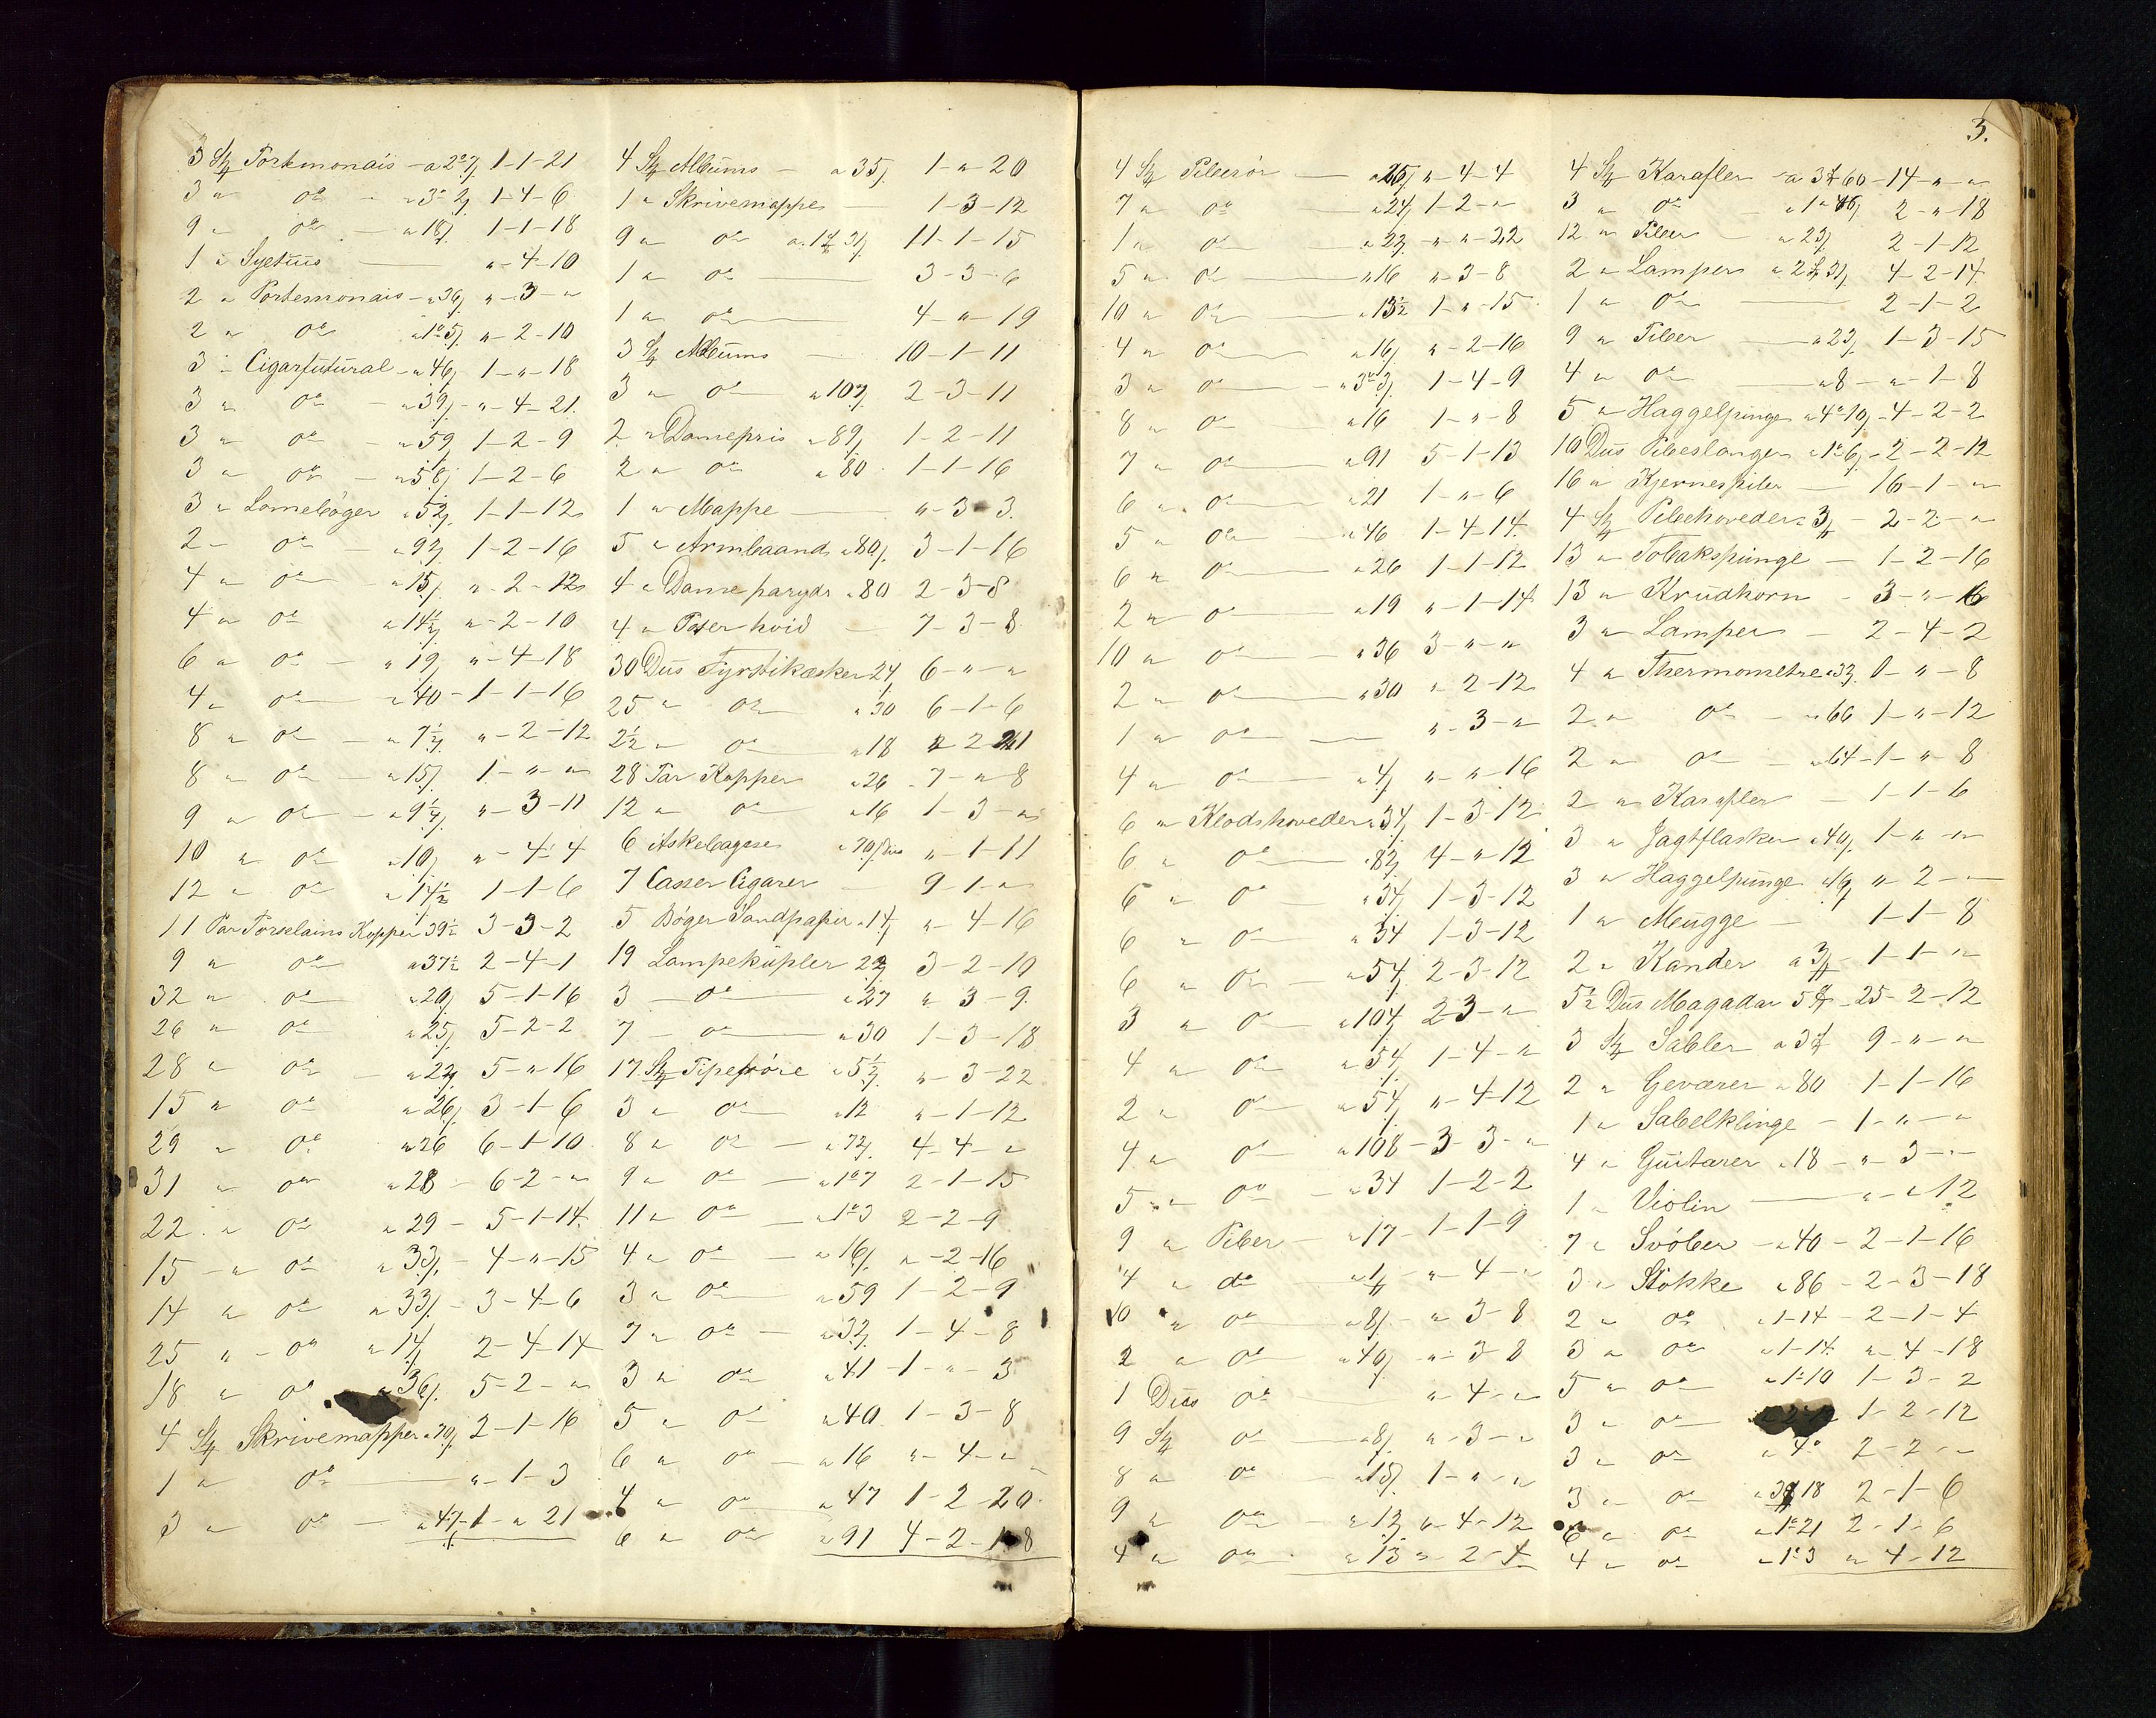 3 Stk Portmonais - a 2°7/ 1-1-21
3 " o° - " 3°2/ 1-4-6
9 " o° - " 18/ 1-1-18
1 " Syetuis " -4-10
2 " Portemonais - " 36/ " -3- "
2 " o° " 1°5/ " -2-10
3 " Cigarfutural - " 46/ 1- " -18
3 " o° - " 39/ - " -4-21
3 " o° - " 59 1-2-9
3 " o° - " 58/ 1-2-6
3 " Lomebøger " 52/ 1-1-12
2 - o° - " 92/ 1-2-16
4 " o° - " 15/ " -2-12
4 " o° " 14½/ " -2-10
6 " o° - " 19/ " -4-18
4 " o° " 40 - 1-1-16
8 " o° - " 7½/ " -2-12
8 " o° - " 15/ 1- " - "
9 " o° - " 9¼/ " -3-11
10 " o° " 10/ " -4-4
12 " o° " 14½ 1-1-6
11 Par Porselains Kopper 39½ 3-3-2
9 " o° " 37½ 2-4-1
32 " o° " 20/ 5-1-16
26 " o° " 25/ 5-2-2
28 " o° - " 22/ 5- " -16
15 " o° " 26/ 3-1-6
29 " o° " 26 6-1-10
31 " o° " 28 - 6-2- "
22 " o° " 29 - 5-1-14
15 - " o° " 33/ - 4- " -15
14 " o° " 33/ - 3-4-6
25 " - o° " 14/ 2-4-14
18 " o° " 36/ 5-2- "
4 Stk Skrivemapper " 70/ 2-1-16
1 " o° " -1-3
3 " o° - " 47-1- " 21
4 Stk Albums - a 35/ 1- " -20
1 " Skrivemappe 1-3-12
9 " o° a 1 31/ 11-1-15
1 " o° 3-3-6
1 " o° 4- " -19
3 Stk Albums 10-1-11
3 " o° a 107 2-3-11
2 " Damepris " 89/ 1-2-11
2 " o° " 80 1-1-16
1 " Mappe " -3-3
5 " Armbaand " 80/ 3-1-16
4 " Dame parydr " 80 2-3-8
4 " Paser hvid 7-3-8
30 Dus Fyrstikæsker 24 6- " - "
25 " o° " 30 6-1-6
2½ " o° " 18 2 21
28 Par Kopper " 26 - 7- " -8
12 " o° " 16 1-3- "
6 Askebagere " 70/Dus " -1-11
7 Casser Cigarer 9-1- "
5 Bøger Sandpapir " 14 " -4-16
19 Lampekupler 22/ 3-2-10
3 - o° " 27 " 3-9
7 - o° " 30 1-3-18
17 Stk Piperøre " 5½/ " -3-22
3 " o° " 12 " -1-12
8 " o° - " 72/ 4-4- "
9 " o° - " 1°7 2-1-15
11 " o° - " 1°3 2-2-9
4 " o° - " 16/ " -2-16
3 " o° " 59 1-2-9
7 " o° - " 32/ 1-4-8
3 " o° " 41-1- " -3
5 " o° " 40 1-3-8
6 " o° - " 16 " -4- "
4 " o° " 47 1-2-20
6 " o° " 91 4-2-18
3.
4 Stk Piberør a 26/ " -4-4
7 " o° " 24/ 1-2- "
1 " o° " 22/ " - " -22
5 " o° " 16 " -3-8
10 " o° " 13½ 1- " -15
4 " o° " 16/ " -2-16
3 " o° - " 3°3/ 1-4-9
8 " o° " 16 1- " -8
7 " o° " 91 5-1-13
6 " o° " 21 1- " -6
5 " o° " 46 1-4-14
6 " o° " 26 1-1-12
2 " o° " 19 " -1-14
10 " o° " 36 3- " - "
2 " o° " 30 " 2-12
1 " o° " -3- "
4 " o° " 4/ " - " -16
6 " Klodshoveder " 34/ 1-3-12
6 " o° " 82/ 4- " -12
6 " o° " 34/ 1-3-12
6 " o° " 34 1-3-12
6 " o° - " 54/ 2-3-12
3 " o° " 104/ 2-3- "
4 " o° " 54/ 1-4- "
2 " o° " 54/ " -4-12
4 " o° " 108 - 3-3- "
5 " o° - " 34 1-2-2
9 " Piber - " 17 - 1-1-9
4 " do - " 1 " -4- "
10 " o° " 8/ - " 3-8
2 " o° " 40/ " -3-8
1 Dus o° " -4- "
9 Stk o° " 8/ " -3- "
8 " o° " 15/ 1- " - "
9 " o° - " 12/ " -4-12
4 " o° " 13 " -2-4
4 Stk Karafler a 3 60 - 14- " - "
3 " o° " 1°46/ 2- " -18
12 " Piber " 23/ 2-1-12
2 " Lamper " 2 31/ 4-2-14
1 " o° 2-1-2
9 " Piber " 23/ 1-3-15
4 " o° " 8 - " -1-8
5 " Haggelpunge " 4°10/ - 4-2-2
10 Dus Pibeslanger " 1°6/ - 2-2-12
16 " Kjernespiler 16-1- "
4 Stk Pibehoveder " 3 - 2-2- "
13 " Tobakspunge - 1-2-16
13 " Krudhorn - 3- " -16
3 " Lamper - 2-4-2
4 " Thermometre " 32/ 1- " -8
2 " o° - " 66 1- " -12
2 " o° " 64-1- " -8
2 " Karafler - 1-1-6
3 " Jagtflasker " 40/ 1- " - "
3 " Haggelpunge " 16/ " 2- "
1 " Mugge - 1-1-8
2 " Kander a 3 - 1-1- "
5½ Dus Magadar 5 - 25-2-12
3 Stk Sabler a 3 9- " - "
2 " Geværer " 80 1-1-16
1 " Sabelklinge - 1- " - "
4 " Guitarer " 18 - " -3- "
1 " Violin " - " 12
7 " Svøber - " 40 - 2-1-16
3 " Støkke " 86 - 2-3-18
2 " o° " 1-14 - 2-1-4
3 " o° " 1-14 " -4-18
5 " o° - " 1°10 1-3-2
3 " o° 1-2-12
3 " o° " 4° 2-2- "
3 " o° " 18 2-1-6
6 " o° " 1°21 2-1-6
4 " o° - 1°3 " 4-12